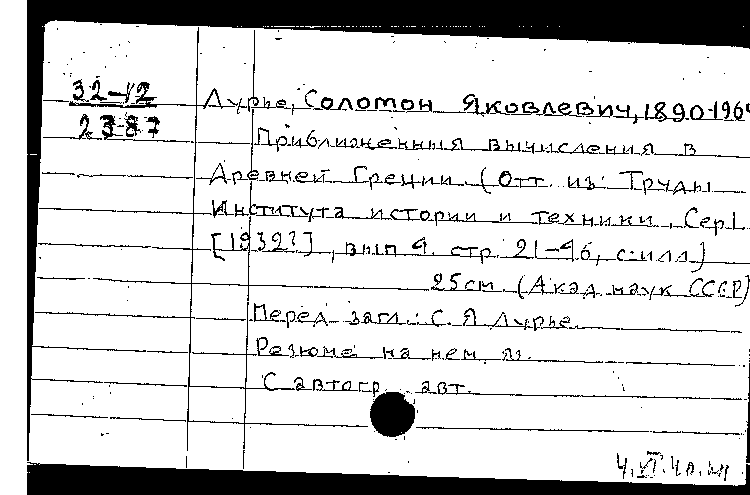 32-12
2387
Лурье, Соломон Яковлевич, 1890-1964
Приближенныя вычисления в
Древней Греции (Отт. из: Труды
Института истории и техники, Сер I.
[1932?], вып 4. стр 21-46, с илл)
25 cm. (Акад наук СССР)
Перед загл.: С. Я Лурье.
Резюме на нем яз.
С автогр. авт.